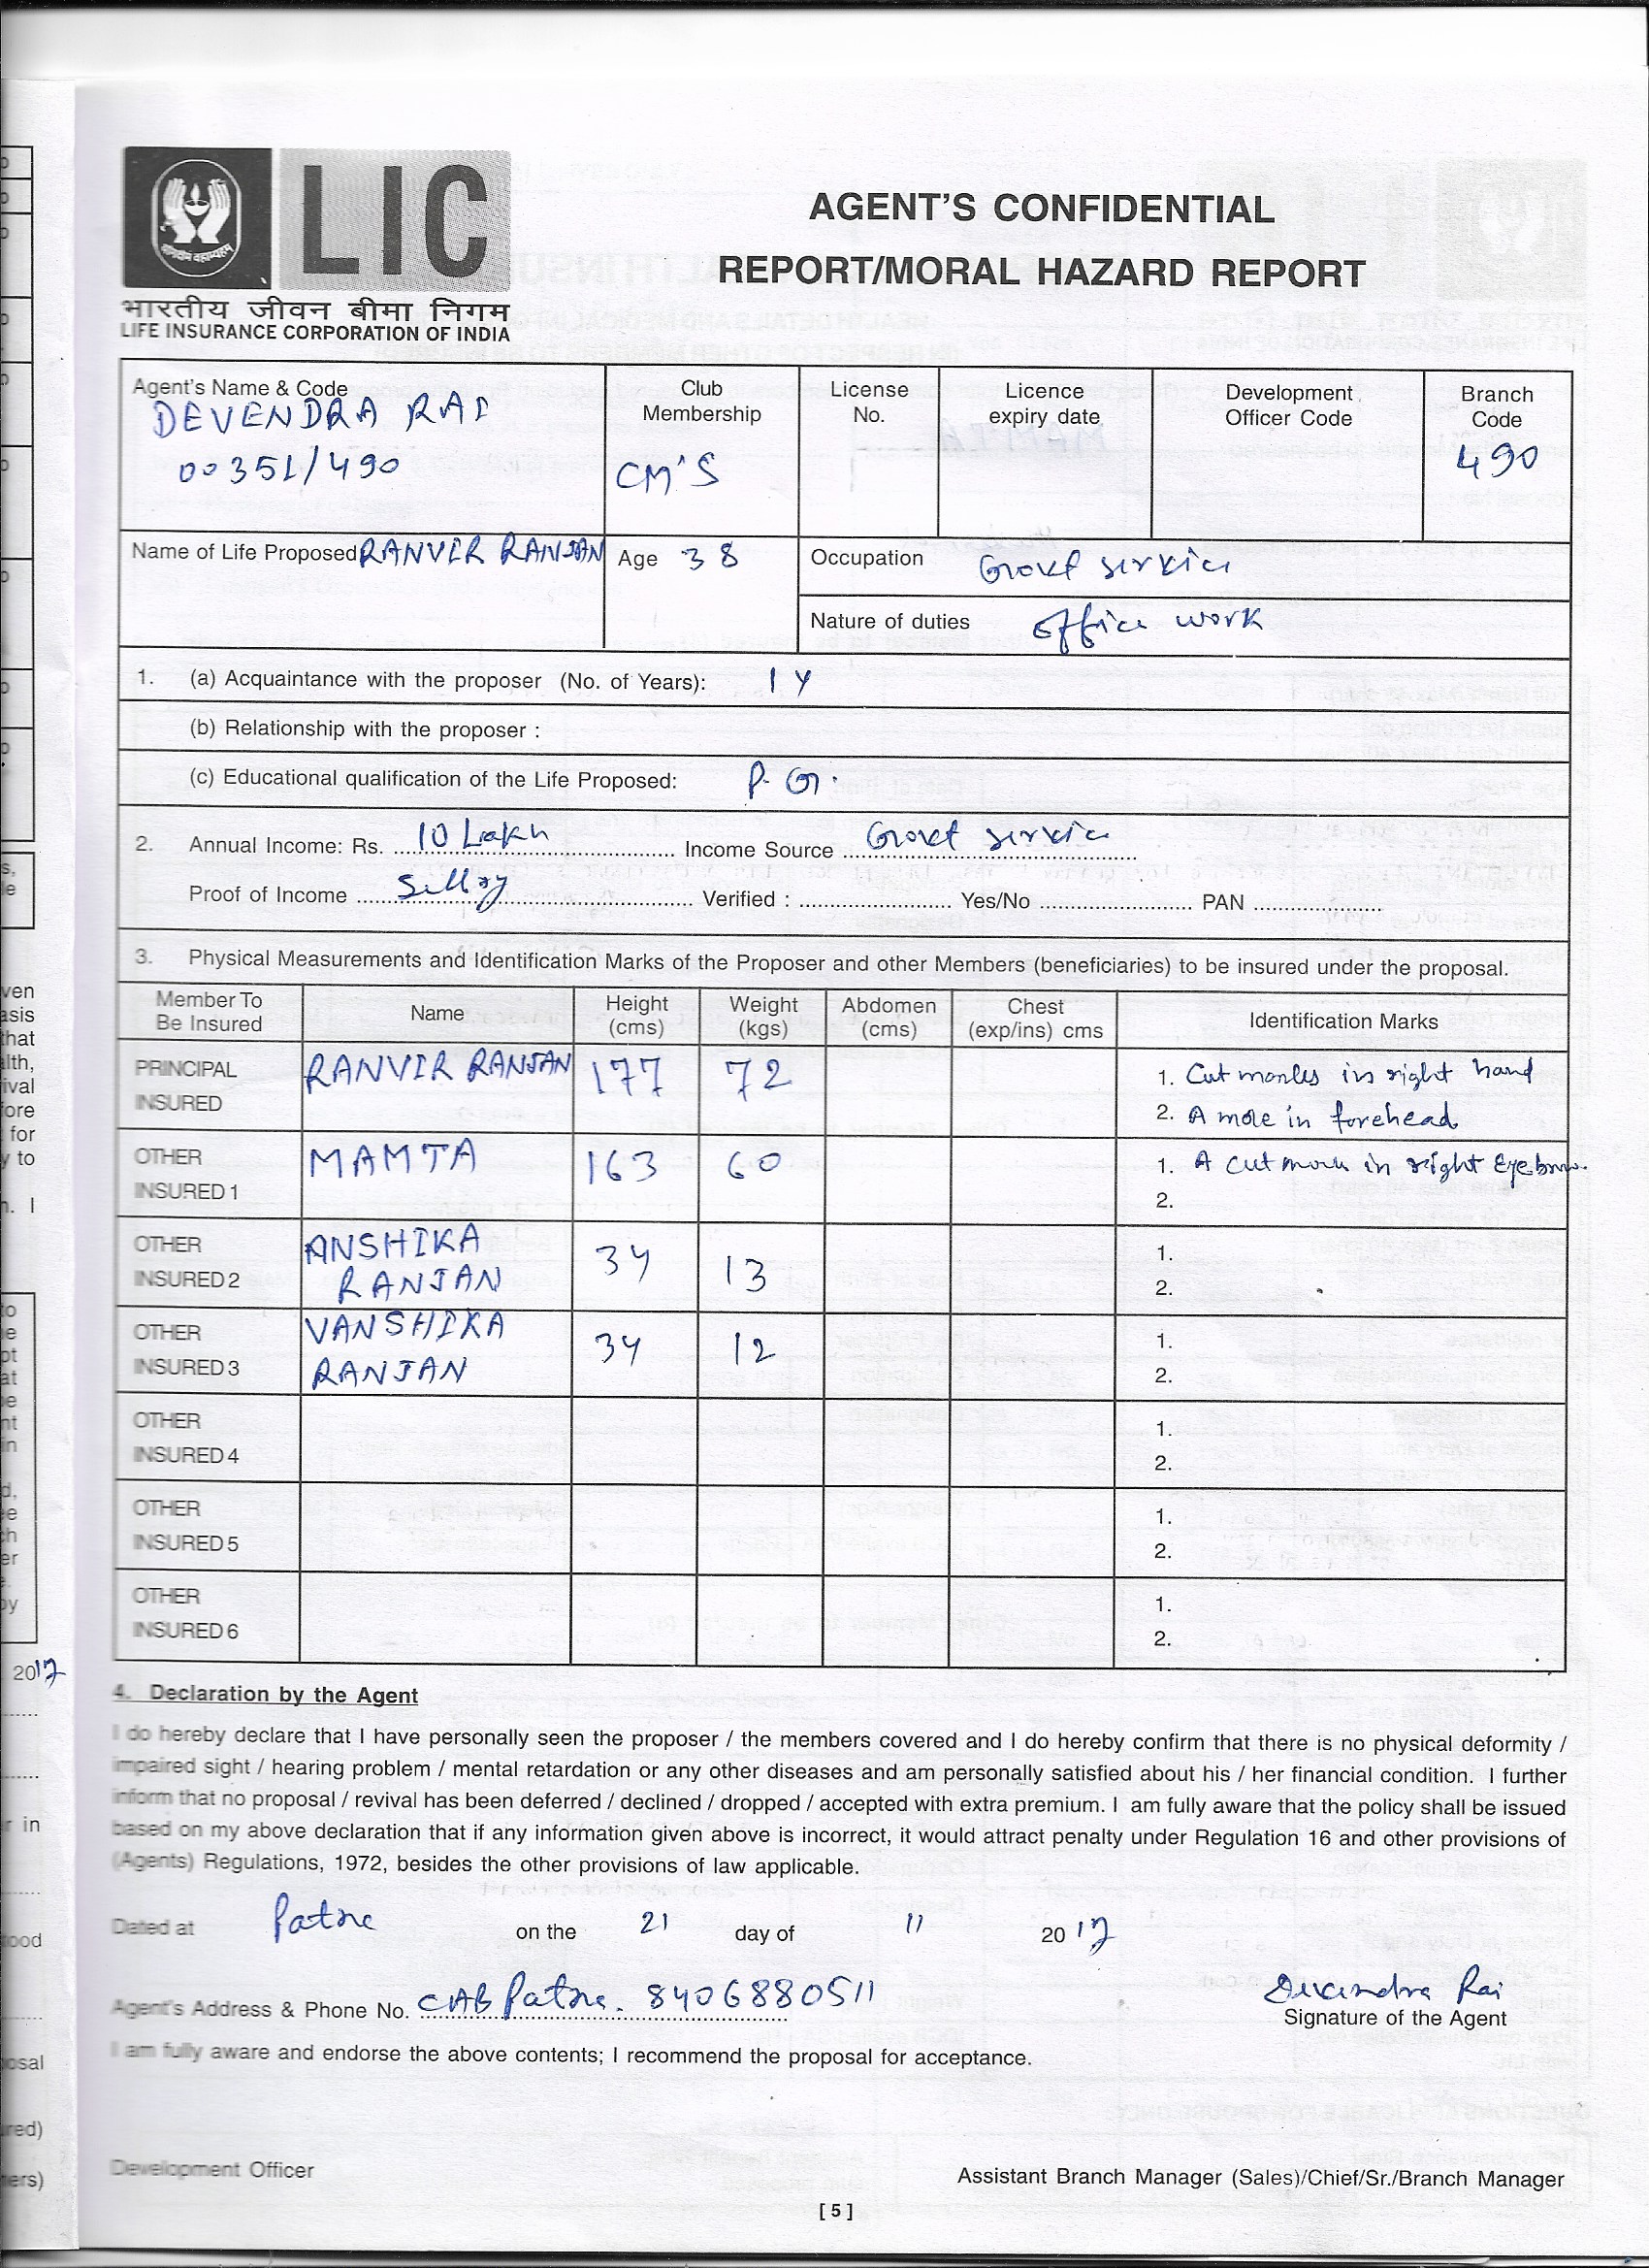 LIC
AGENT'S CONFIDENTIAL
REPORT/MORAL HAZARD REPORT
भारतीय जीवन बीमा निगम
LIFE INSURANCE CORPORATION OF INDIA
Agent's Name & Code
DEVENDRA RAI
00351/490
Club Membership
CM'S
License No.
Licence expiry date
Development Officer Code
Branch Code
490
Name of Life Proposed RANVIR RANJAN Age 38 Occupation Govt service
Nature of duties office work
1. (a) Acquaintance with the proposer (No. of Years): 1 Y
(b) Relationship with the proposer :
(c) Educational qualification of the Life Proposed: P.G.
2. Annual Income: Rs. 10 Lakh Income Source Govt service
Proof of Income Sallry Verified : Yes/No PAN
3. Physical Measurements and Identification Marks of the Proposer and other Members (beneficiaries) to be insured under the proposal.
Member To Be Insured Name Height (cms) Weight (kgs) Abdomen (cms) Chest (exp/ins) cms Identification Marks
PRINCIPAL INSURED RANVIR RANJAN 177 72 1. Cut marks in right hand
2. A mole in forehead
OTHER INSURED 1 MAMTA 163 60 1. A cut mark in right Eyebrow.
2.
OTHER INSURED 2 ANSHIKA RANJAN 34 13 1.
2.
OTHER INSURED 3 VANSHIKA RANJAN 34 12 1.
2.
OTHER INSURED 4 1.
2.
OTHER INSURED 5 1.
2.
OTHER INSURED 6 1.
2.
4. Declaration by the Agent
I do hereby declare that I have personally seen the proposer / the members covered and I do hereby confirm that there is no physical deformity /
impaired sight / hearing problem / mental retardation or any other diseases and am personally satisfied about his / her financial condition. I further
inform that no proposal / revival has been deferred / declined / dropped / accepted with extra premium. I am fully aware that the policy shall be issued
based on my above declaration that if any information given above is incorrect, it would attract penalty under Regulation 16 and other provisions of
(Agents) Regulations, 1972, besides the other provisions of law applicable.
Dated at Patna on the 21 day of 11 2017
Agent's Address & Phone No. CAB Patna. 8406880511
Devendra Rai
Signature of the Agent
I am fully aware and endorse the above contents; I recommend the proposal for acceptance.
Development Officer
Assistant Branch Manager (Sales)/Chief/Sr./Branch Manager
[ 5 ]